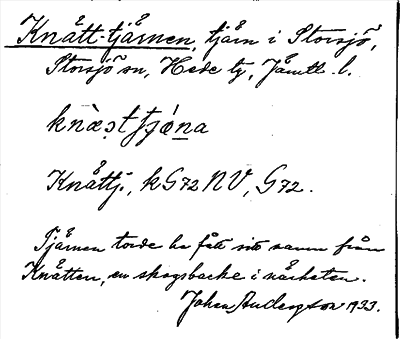 Knått-tjärnen, tjärn i Storsjö,
Storsjö sn, Hede tg, Jämtl. l.
Knåttj., k G72 NV, G72.
Tjärnen torde ha fått sitt namn från
Knåtten, en skogsbacke i närheten.
Johan Anderson 1933.